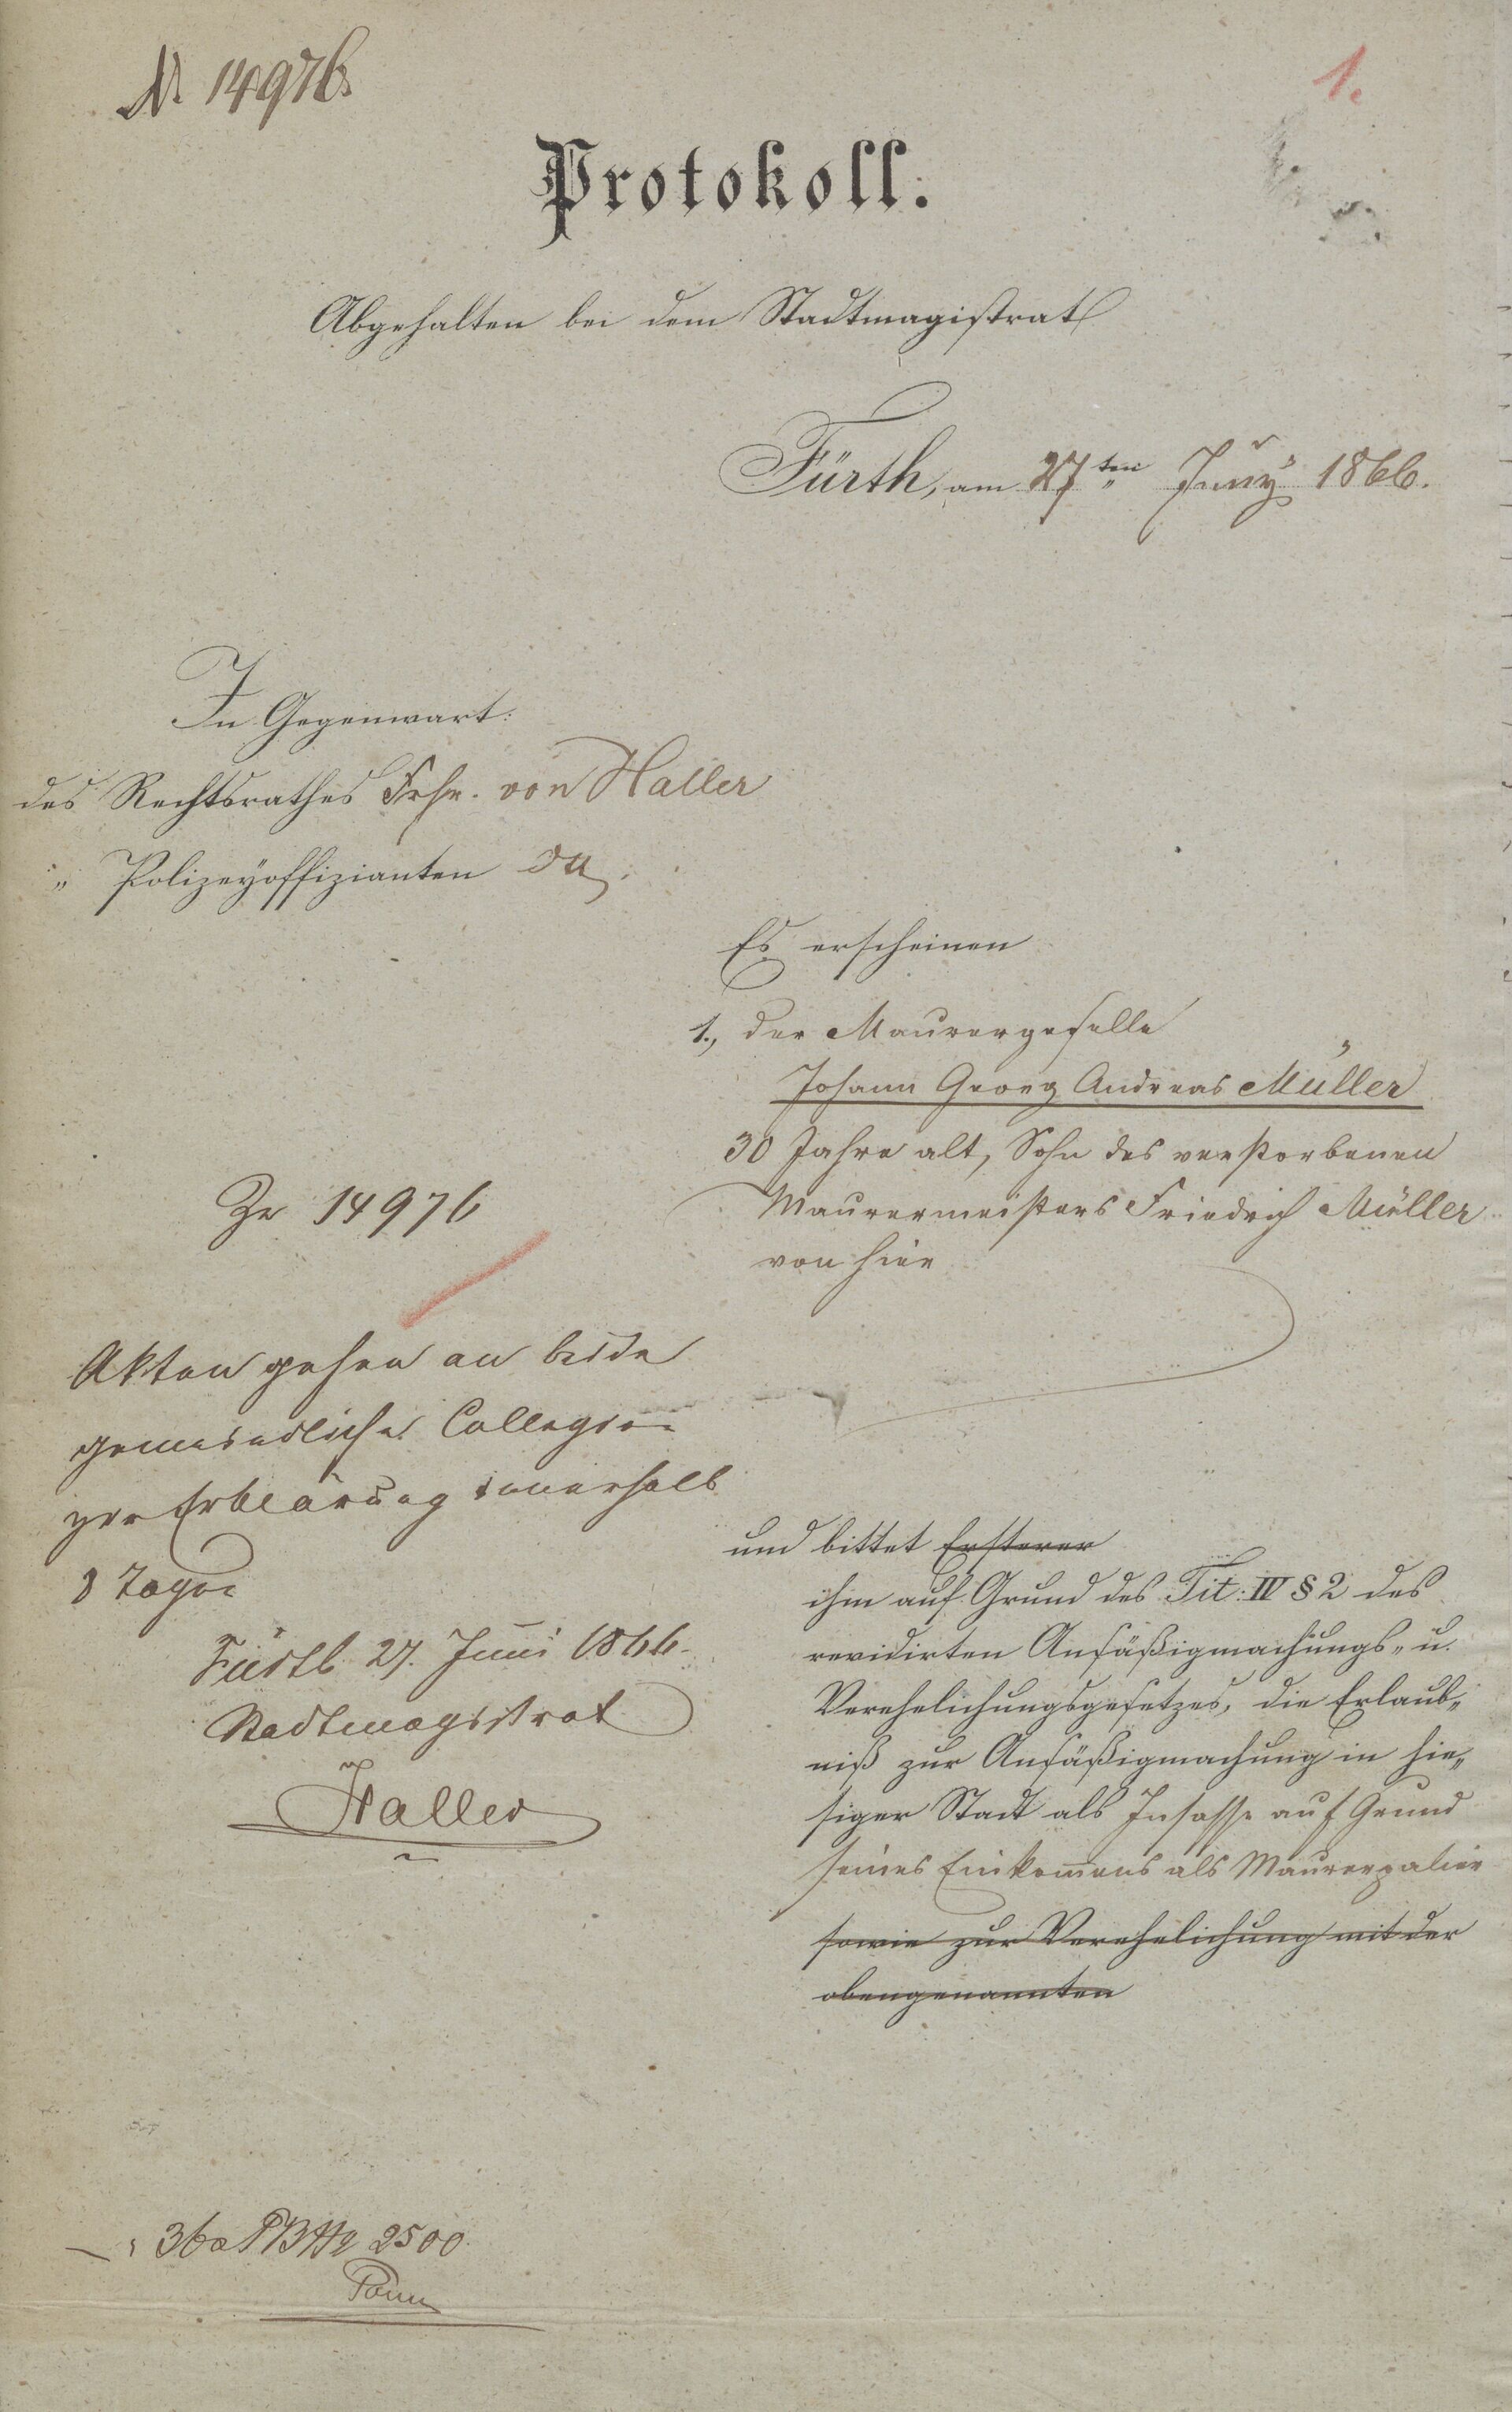 № 14976.
1.
Protokoll.
Abgehalten bei dem Stadtmagistrat
Fürth, am 27ten Juny 1866.
In Gegenwart:
des Rechtsrathes Frhr. von Haller
„ Polizeyoffizianten
Es erscheinen
1., der Maurergeselle
Johann Georg Andreas Müller
30 Jahre alt, Sohn des verstorbenen
Maurermeisters Friedrich Müller
von hier
Zr 14976
Akten gehen an beide
gemeindliche Collegien
zur Erklärung innerhalb
8 Tagen
Fürth 27. Juni 1866.
Stadtmagistrat
Haller
und bittet Ersterer
ihm auf Grund des Tit: IV § 2 des
revidirten Ansäßigmachungs- u.
Verehelichungsgesetzes, die Erlaub„
niß zur Ansäßigmachung in hie„
siger Stadt als Insasse auf Grund
seines Einkom̄ens als Maurerpalier
sowie zur Verehelichung mit der
obengenannten
2500